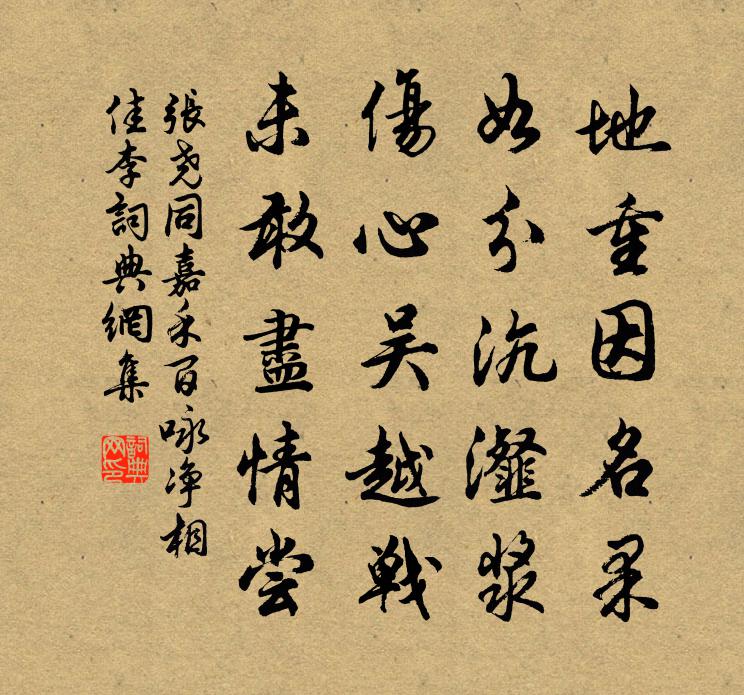 地重因名果
如分沆瀣漿
傷心吳越戰
未敢盡情嘗
張堯同嘉禾百咏净相
佳李詞典網集
詞典网印